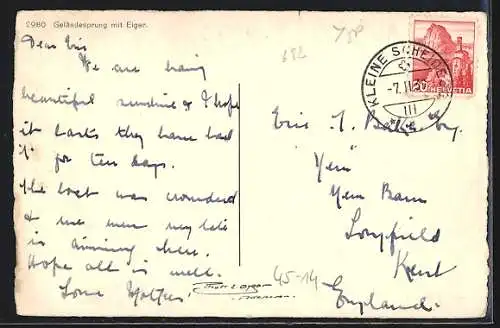 2980 Geländesprung mit Eiger.
Dear Eric
We are having
beautiful sunshine & I hope
it lasts they have had
it for ten days.
The boat was crowded
& we were very late
in arriving here.
Hope all is well.
Love Mother
KLEINE SCHEIDEGG
-7.II.39
III
HELVETIA
Eric J. Esq.
"Yew"
Yew Barn
Longfield
Kent
England.
45-14